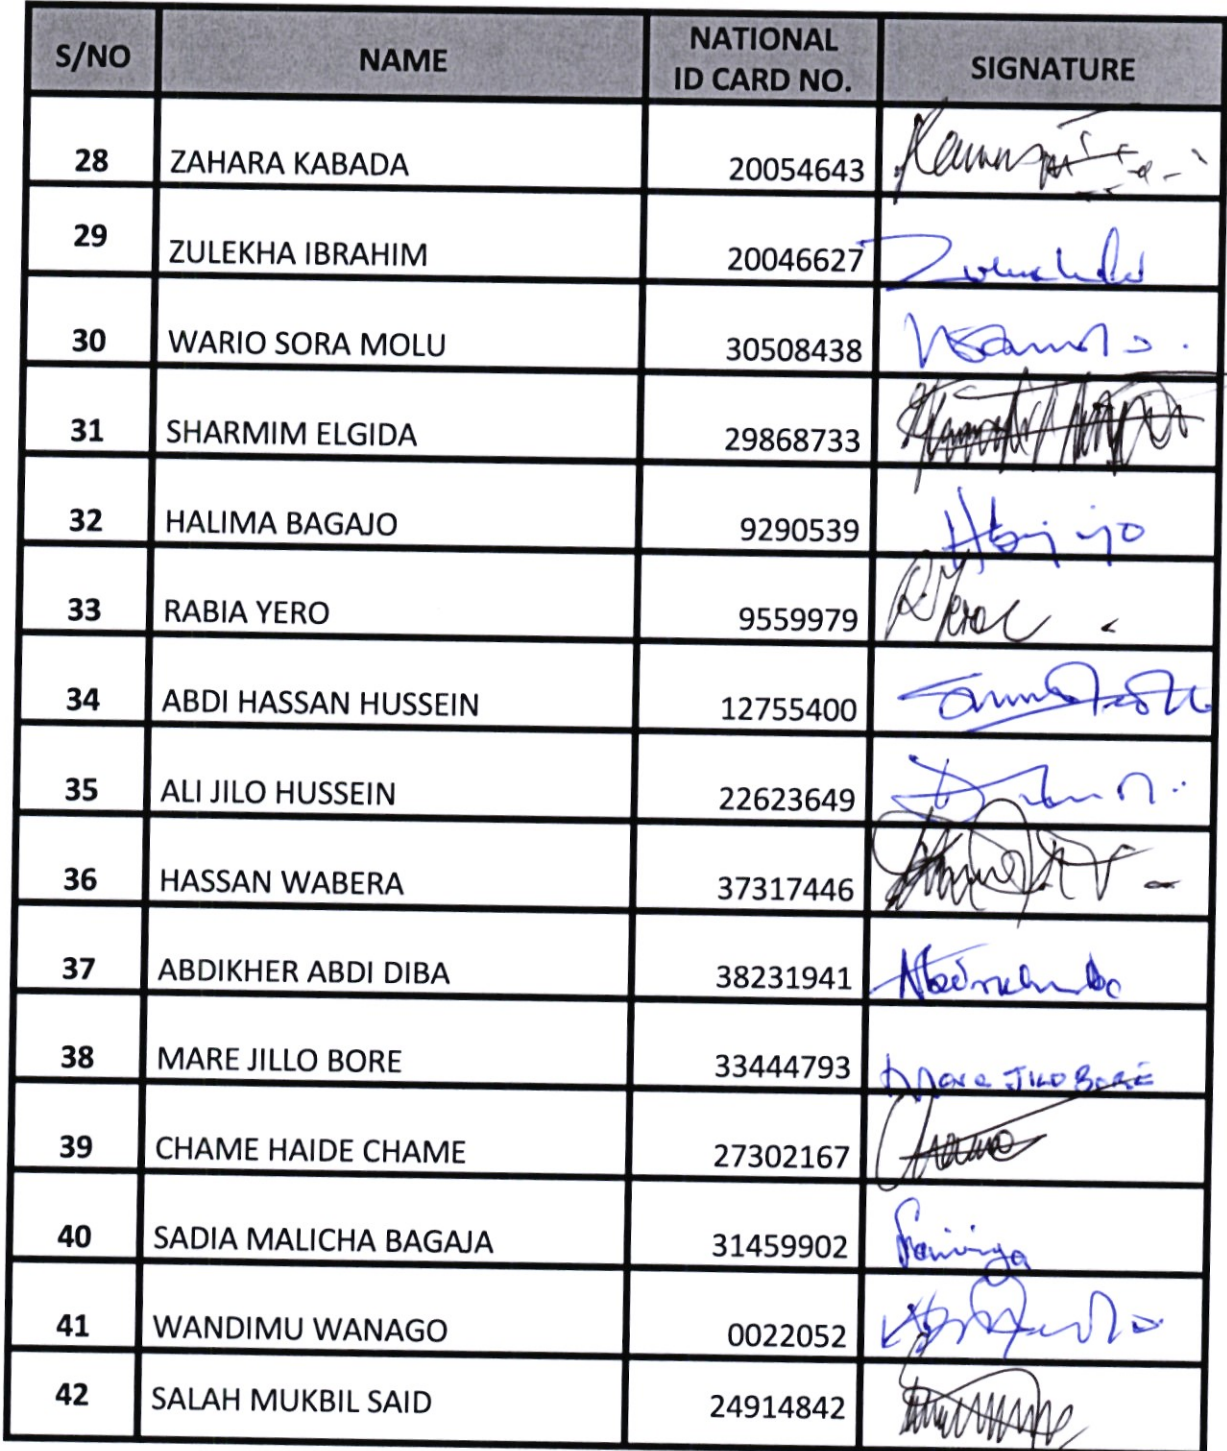 S/NO NAME NATIONAL ID CARD NO. SIGNATURE
28 ZAHARA KABADA 20054643
29 ZULEKHA IBRAHIM 20046627
30 WARIO SORA MOLU 30508438
31 SHARMIM ELGIDA 29868733
32 HALIMA BAGAJO 9290539
33 RABIA YERO 9559979
34 ABDI HASSAN HUSSEIN 12755400
35 ALI JILO HUSSEIN 22623649
36 HASSAN WABERA 37317446
37 ABDIKHER ABDI DIBA 38231941
38 MARE JILLO BORE 33444793 JILO BORE
39 CHAME HAIDE CHAME 27302167
40 SADIA MALICHA BAGAJA 31459902
41 WANDIMU WANAGO 0022052
42 SALAH MUKBIL SAID 24914842